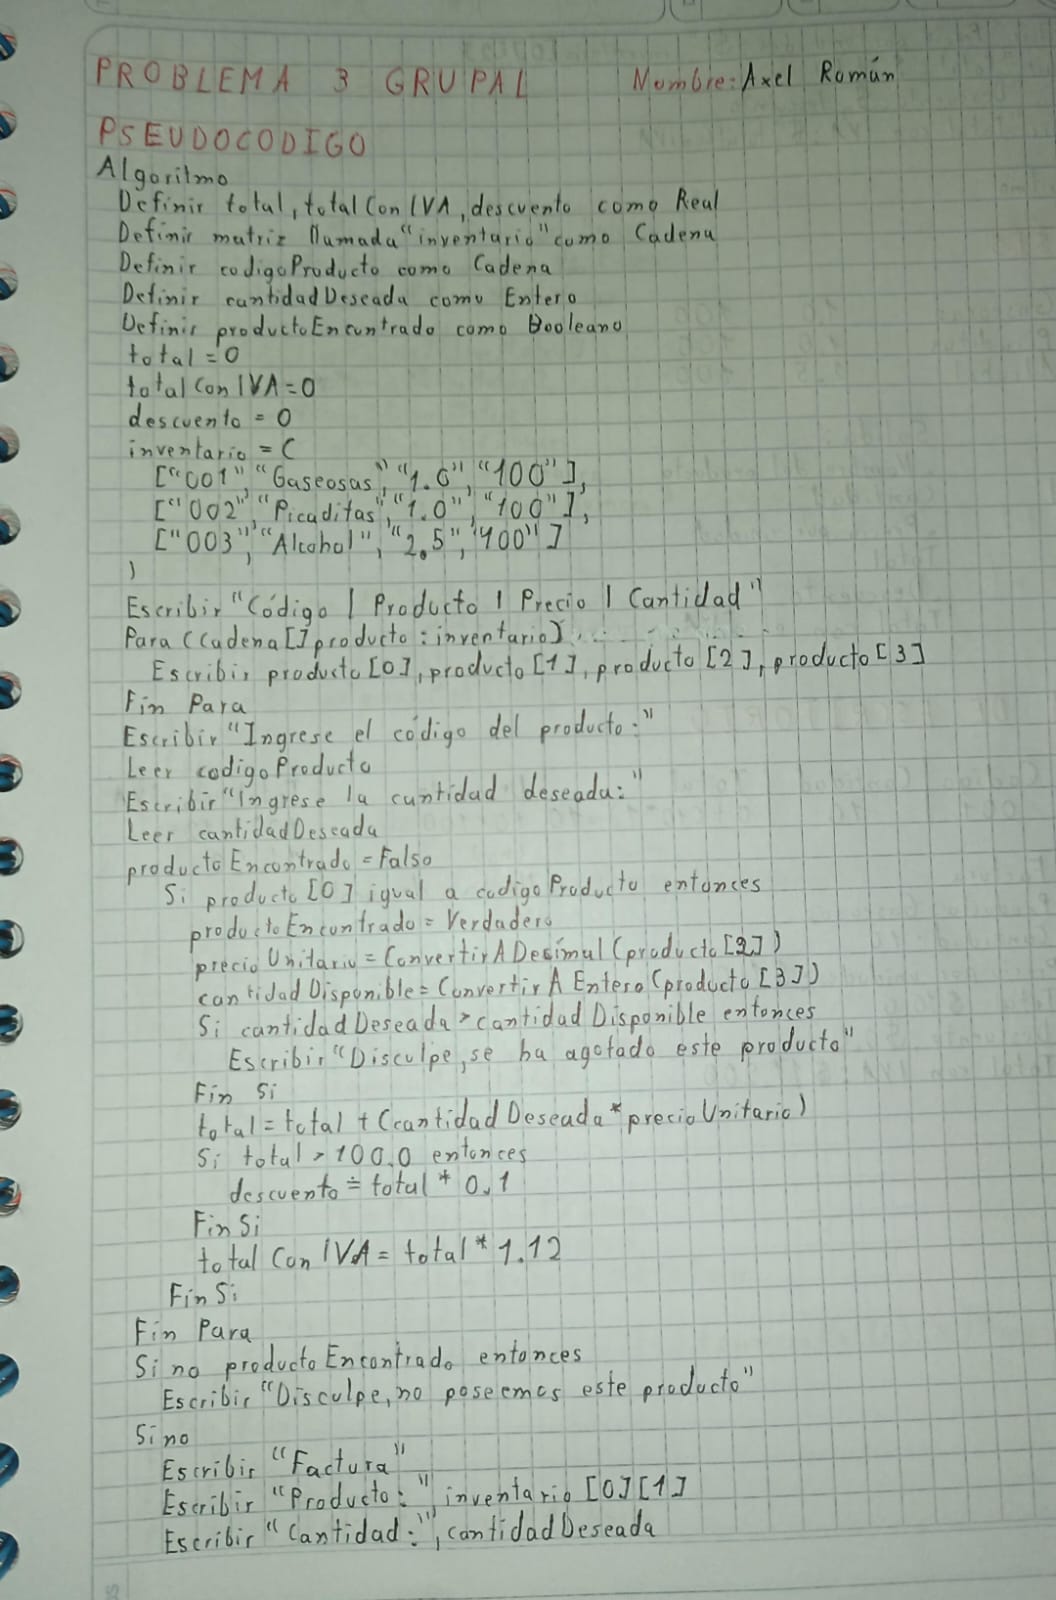 PROBLEMA 3 GRUPAL Nombre: Axel Román
PSEUDOCODIGO
Algoritmo
Definir total, totalConIVA, descuento como Real
Definir matriz llamada "inventario" como Cadena
Definir codigoProducto como Cadena
Definir cantidadDeseada como Entero
Definir productoEncontrado como Booleano
total = 0
totalConIVA = 0
descuento = 0
inventario = (
["001", "Gaseosas", "1.0", "100"],
["002", "Picaditas", "1.0", "100"],
["003", "Alcohol", "2.5", "100"]
)
Escribir "Código | Producto | Precio | Cantidad"
Para (Cadena[] producto : inventario)
Escribir producto[0], producto[1], producto[2], producto[3]
Fin Para
Escribir "Ingrese el código del producto:"
Leer codigoProducto
Escribir "Ingrese la cantidad deseada:"
Leer cantidadDeseada
productoEncontrado = Falso
Si producto[0] igual a codigoProducto entonces
productoEncontrado = Verdadero
precioUnitario = ConvertirADecimal(producto[2])
cantidadDisponible = ConvertirAEntero(producto[3])
Si cantidadDeseada > cantidadDisponible entonces
Escribir "Disculpe, se ha agotado este producto"
Fin Si
total = total + (cantidadDeseada * precioUnitario)
Si total > 100.0 entonces
descuento = total * 0.1
Fin Si
totalConIVA = total * 1.12
Fin Si
Fin Para
Si no productoEncontrado entonces
Escribir "Disculpe, no poseemos este producto"
Sino
Escribir "Factura"
Escribir "Producto:", inventario[0][1]
Escribir "Cantidad:", cantidadDeseada